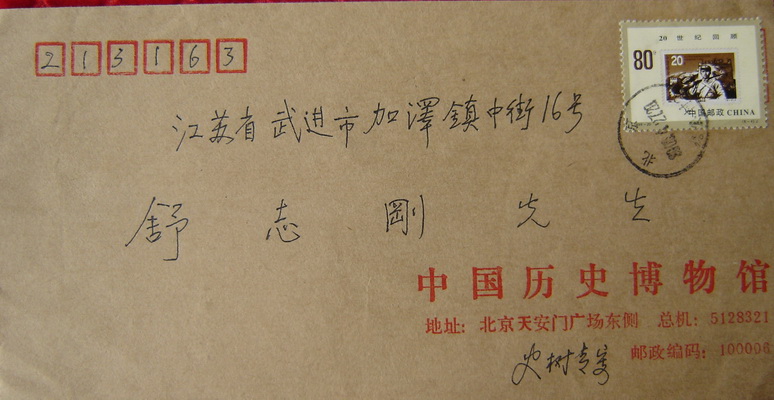 213163
20世纪回顾
80分
20
中国邮政 CHINA
北京
江苏省武进市加澤鎮中街16号
舒志剛先生
中国历史博物馆
地址: 北京天安门广场东侧 总机: 5128321
邮政编码: 100006